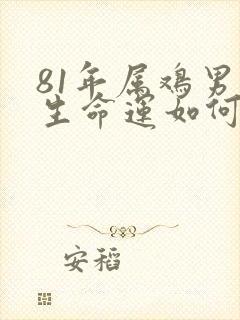 81年属鸡男
生命运如何
安稻